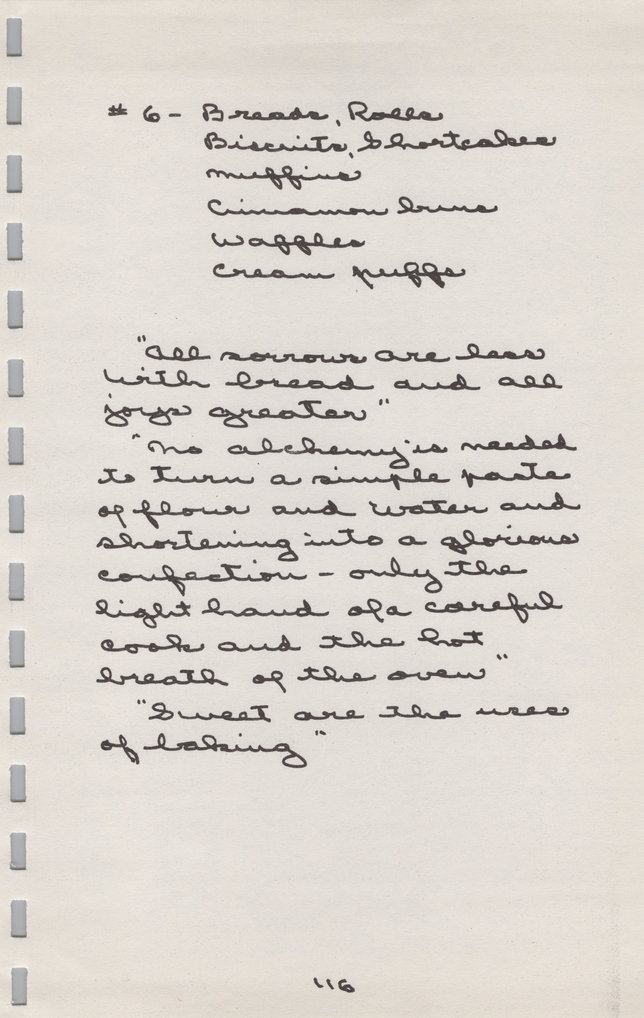 # 6 - Breads, Rolls
Biscuits, Shortcakes
muffins
Cinnamon buns
Waffles
Cream puffs
"All sorrows are less
with bread and all
joys greater"
"No alchemy is needed
to turn a simple paste
of flour and water and
shortening into a glorious
confection - only the
light hand of a careful
cook and the hot
breath of the oven"
"Sweet are the uses
of baking"
116